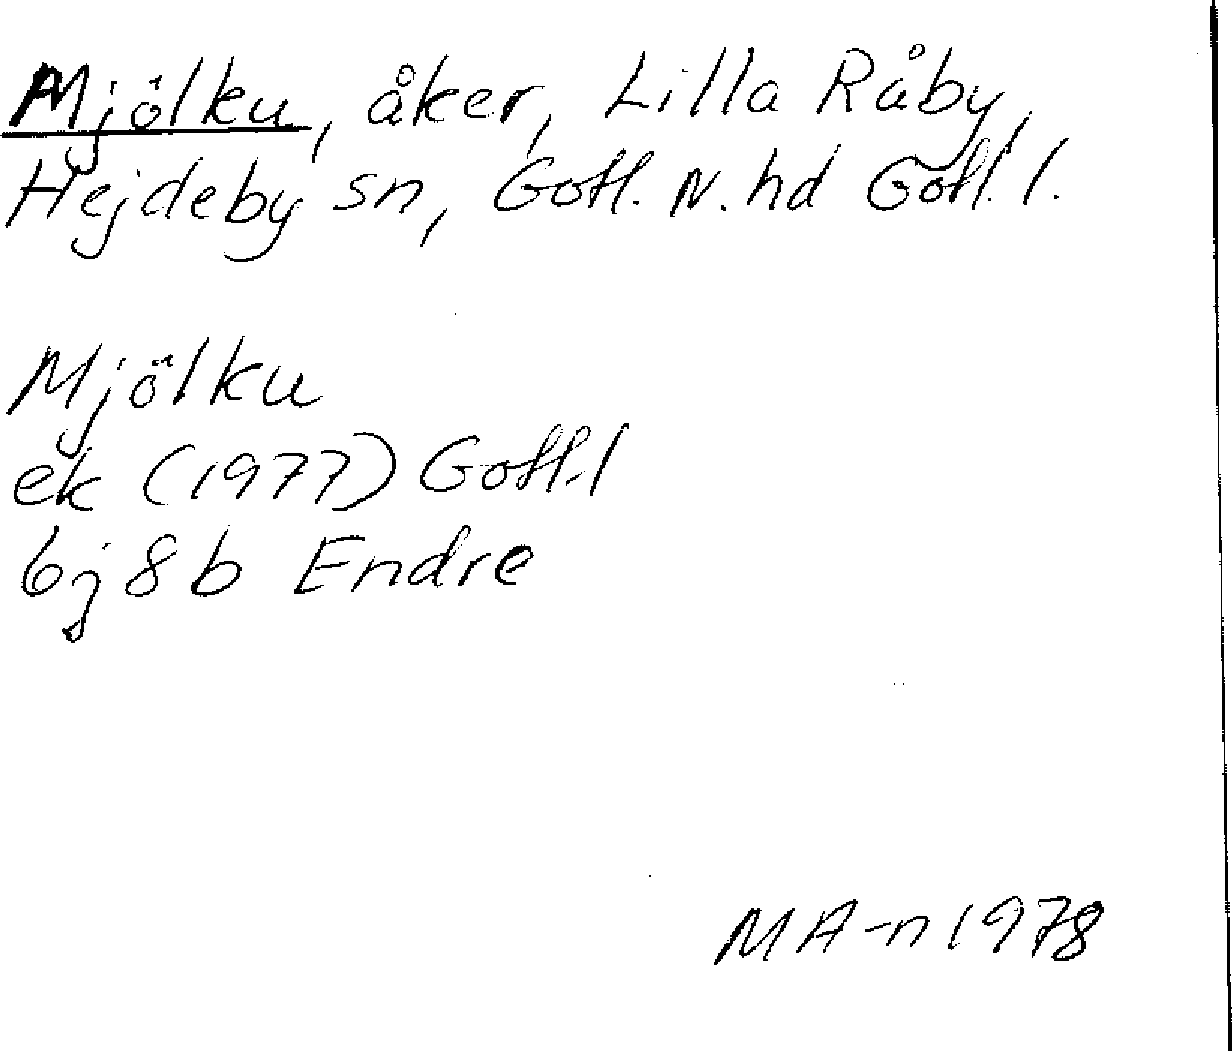 Mjölku, åker, Lilla Råby,
Hejdeby sn, Gotl. N. hd Gotl. l.
Mjölku
ek (1977) Gotl. l
6j 8b Endre
MA-n 1978